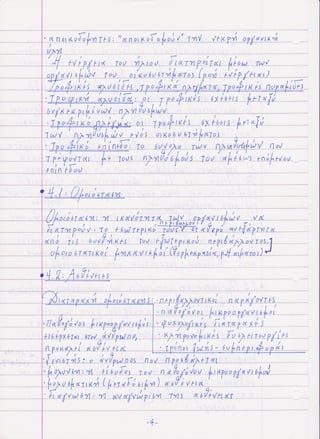 · αποικοδομητές: "αποικοδομούν" την νεκρή οργανική
ύλη
Η ενέργεια του ήλιου διατηρείται μέσω των
οργανισμών του οικοσυστήματος (ροή ενέργειας)
Τροφικές αλυσίδες, τροφικά πλέγματα, τροφικές πυραμίδες
· Τροφική αλυσίδα: οι τροφικές σχέσεις μεταξύ
συγκεκριμένων πληθυσμών
· Τροφικό πλέγμα: οι τροφικές σχέσεις μεταξύ
των πληθυσμών ενός οικοσυστήματος
· Τροφικό επίπεδο: το σύνολο των πληθυσμών που
τρέφονται με τους πληθυσμούς του αμέσως επόμενου
επιπέδου
• 4.1: Ομοιόσταση
Ομοιόσταση: η ικανότητα των οργανισμών να
διατηρούν το εσωτερικό τους περιβάλλον σταθερό ανεξάρτητα
από τις συνθήκες του εξωτερικού περιβάλλοντος
ομοιοστατικοί μηχανισμοί (θερμοκρασία, pH αίματος)
• 4.2: Ασθένειες
Διαταραχή ομοιόστασης: · περιβαλλοντικοί παράγοντες
· παθογόνοι μικροοργανισμοί
Παθογόνος μικροοργανισμός: · ψυχολογικές διαταραχές
εισέρχεται στον άνθρωπο, · κληρονομικές δυσλειτουργίες
προκαλεί ασθένεια · τρόπος ζωής - συμπεριφοράς
· ξενιστής: ο άνθρωπος που προσβάλλεται
· μόλυνση: η είσοδος του παθογόνου μικροοργανισμού
· μολυσματική (μεταδοτική) ασθένεια
· διάγνωση: η αναγνώριση της ασθένειας
-4-